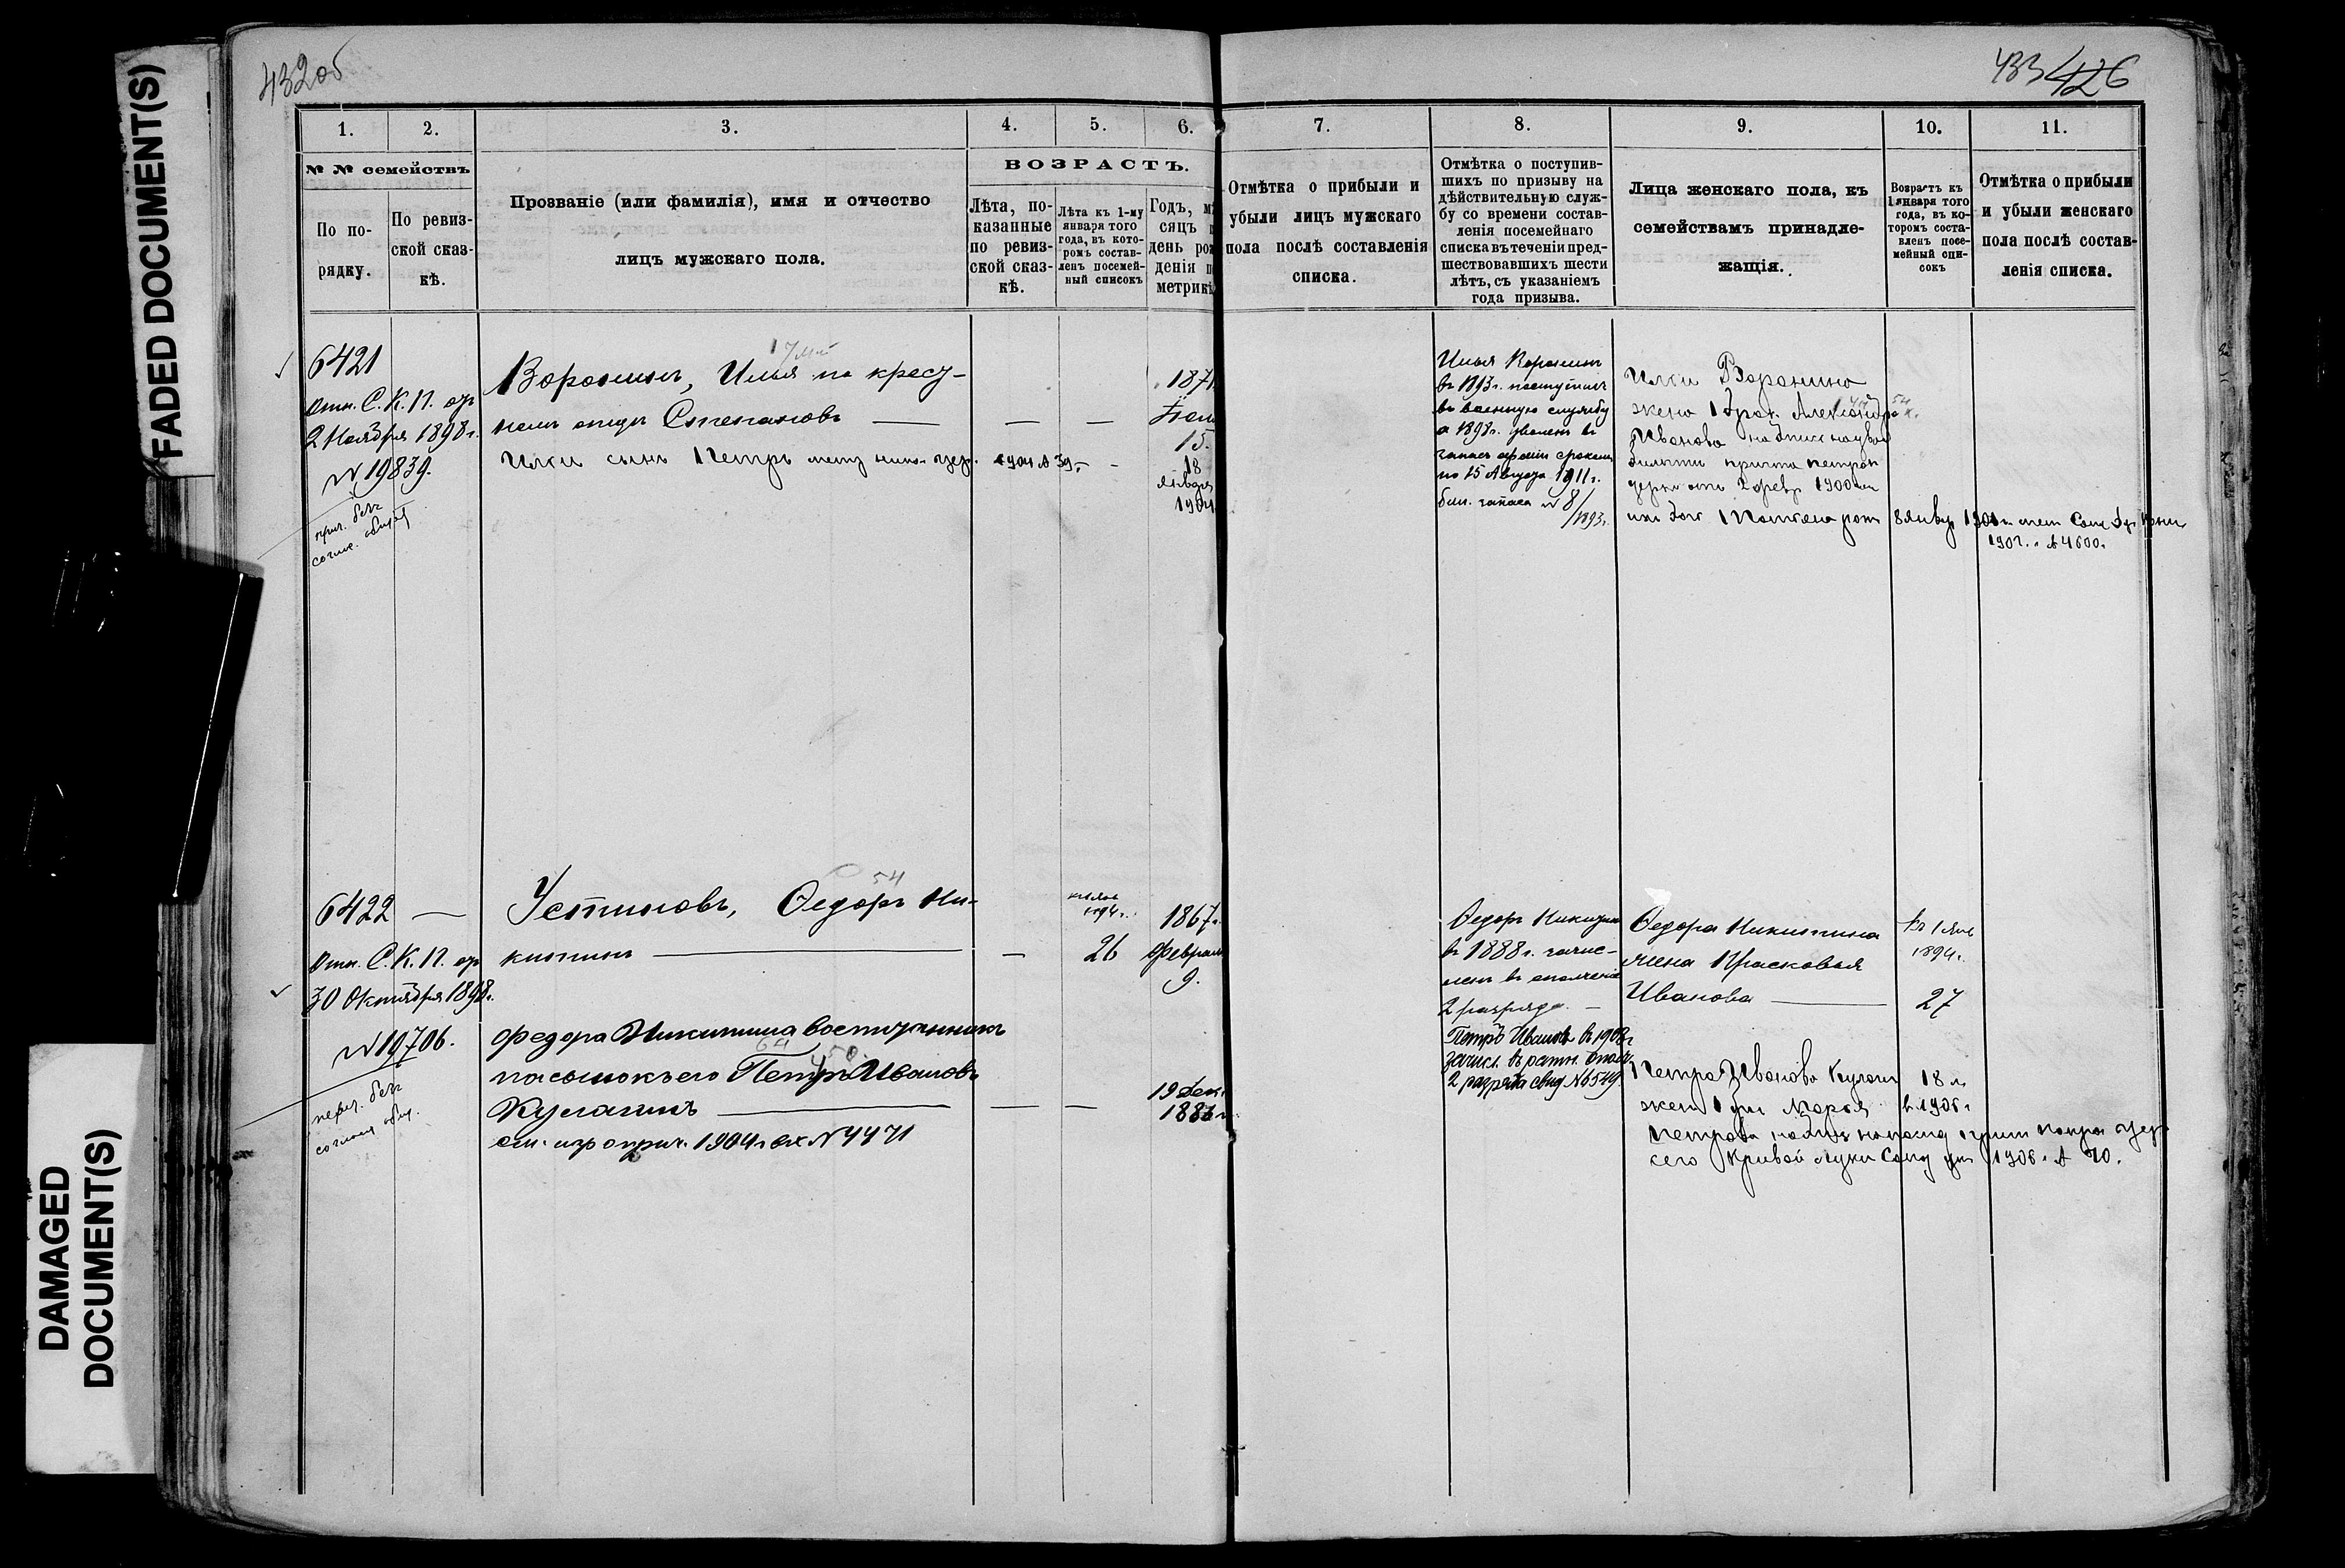 FADED DOCUMENT(S)
DAMAGED
DOCUMENT(S)
432об
433 426
1. 2. 3. 4. 5. 6. 7. 8. 9. 10. 11.
№ № семействъ
По по-
рядку.
По ревиз-
ской сказ-
кѣ.
Прозваніе (или фамилія), имя и отчество
лицъ мужскаго пола.
ВОЗРАСТЪ.
Лѣта, по-
казанные
по ревиз-
ской сказ-
кѣ.
Лѣта къ 1-му
января того
года, въ кото-
ромъ состав-
ленъ посемей-
ный списокъ
Годъ, мѣ
сяцъ и
день рож
денія п
метрикѣ
Отмѣтка о прибыли и
убыли лицъ мужскаго
пола послѣ составленія
списка.
Отмѣтка о поступив-
шихъ по призыву на
дѣйствительную служ-
бу со времени состав-
ленія посемейнаго
списка въ теченіи пред-
шествовавшихъ шести
лѣтъ, съ указаніемъ
года призыва.
Лица женскаго пола, къ
семействамъ принадле-
жащія.
Возрастъ къ
1 января того
года, въ ко-
торомъ соста-
вленъ посе-
мейный спи-
сокъ
Отмѣтка о прибыли
и убыли женскаго
пола послѣ состав-
ленія списка.
6421
Отн. С. К. П. отъ
2 Ноября 1898 г.
№ 19839.
Воронинъ, Илья по крест-
ному отцу Степановъ
Ильи сынъ Петръ
1871
15.
18
января
1904
Илья Воронинъ
въ 1893 г. поступилъ
въ военную службу
а 1898 г. уволенъ въ
запасъ арміи срокомъ
по 15 Августа 1911 г.
бил. запаса № 8/1893 г.
Ильи Воронина
жена 1 брак. Александра
Иванова
1900
8 янв
190
№ 4600.
6422
Отн. С. К. П. отъ
30 Октября 1898 г.
№ 19706.
переч. безъ
соглас. общ.
Устиновъ, Ѳедоръ Ни-
китинъ
54
1894 г.
26
1867 г.
Февраля
9.
Федора Никитина воспитанникъ
пасынокъ его Петръ Ивановъ
Кулагинъ
1904 г. вх № 4471
19 Дек.
188
Ѳедоръ Никитинъ
въ 1888 г. зачис-
ленъ въ ополченіе
2 разряда.
Петръ Ивановъ въ 1908 г
зачисл. въ ратн. ополч.
2 разряда свид № 6549
Ѳедора Никитина
жена Прасковья
Иванова
къ 1 Янв
1894 г.
27
Петра Иванова Кулагин
жена 1 бр Марья
Петрова
18 л
в 1906 г
село Кривой Луки Самар у 1906 г. № 70.